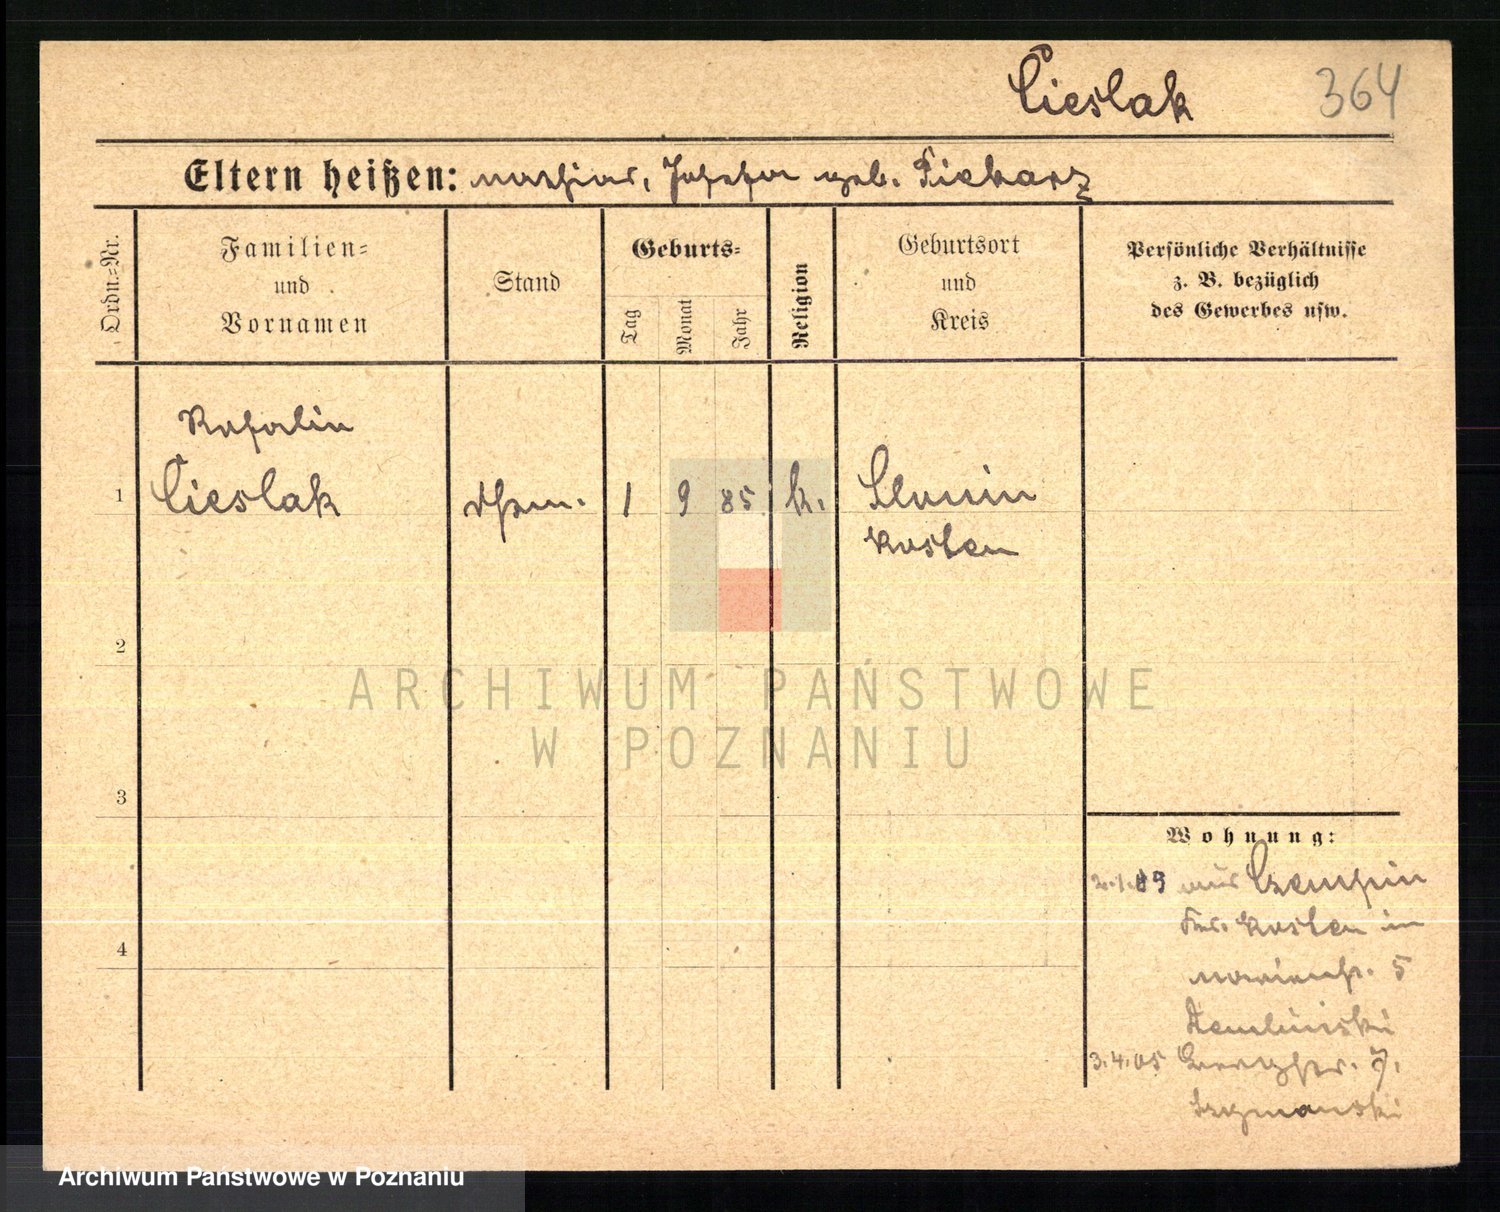 Cieslak 364
Eltern heißen: Mathias, Josefa geb. Piekarz
Ordn.-Nr.
Familien-
und
Vornamen
Stand
Geburts-
Tag
Monat
Jahr
Religion
Geburtsort
und
Kreis
Persönliche Verhältnisse
z. B. bezüglich
des Gewerbes usw.
Cieslak
1 9 85 k.
Kosten
1
2
3
4
ARCHIWUM PAŃSTWOWE
W POZNANIU
Wohnung:
aus Czempin
Kosten in
5
3.4.05
Szymanski
Archiwum Państwowe w Poznaniu